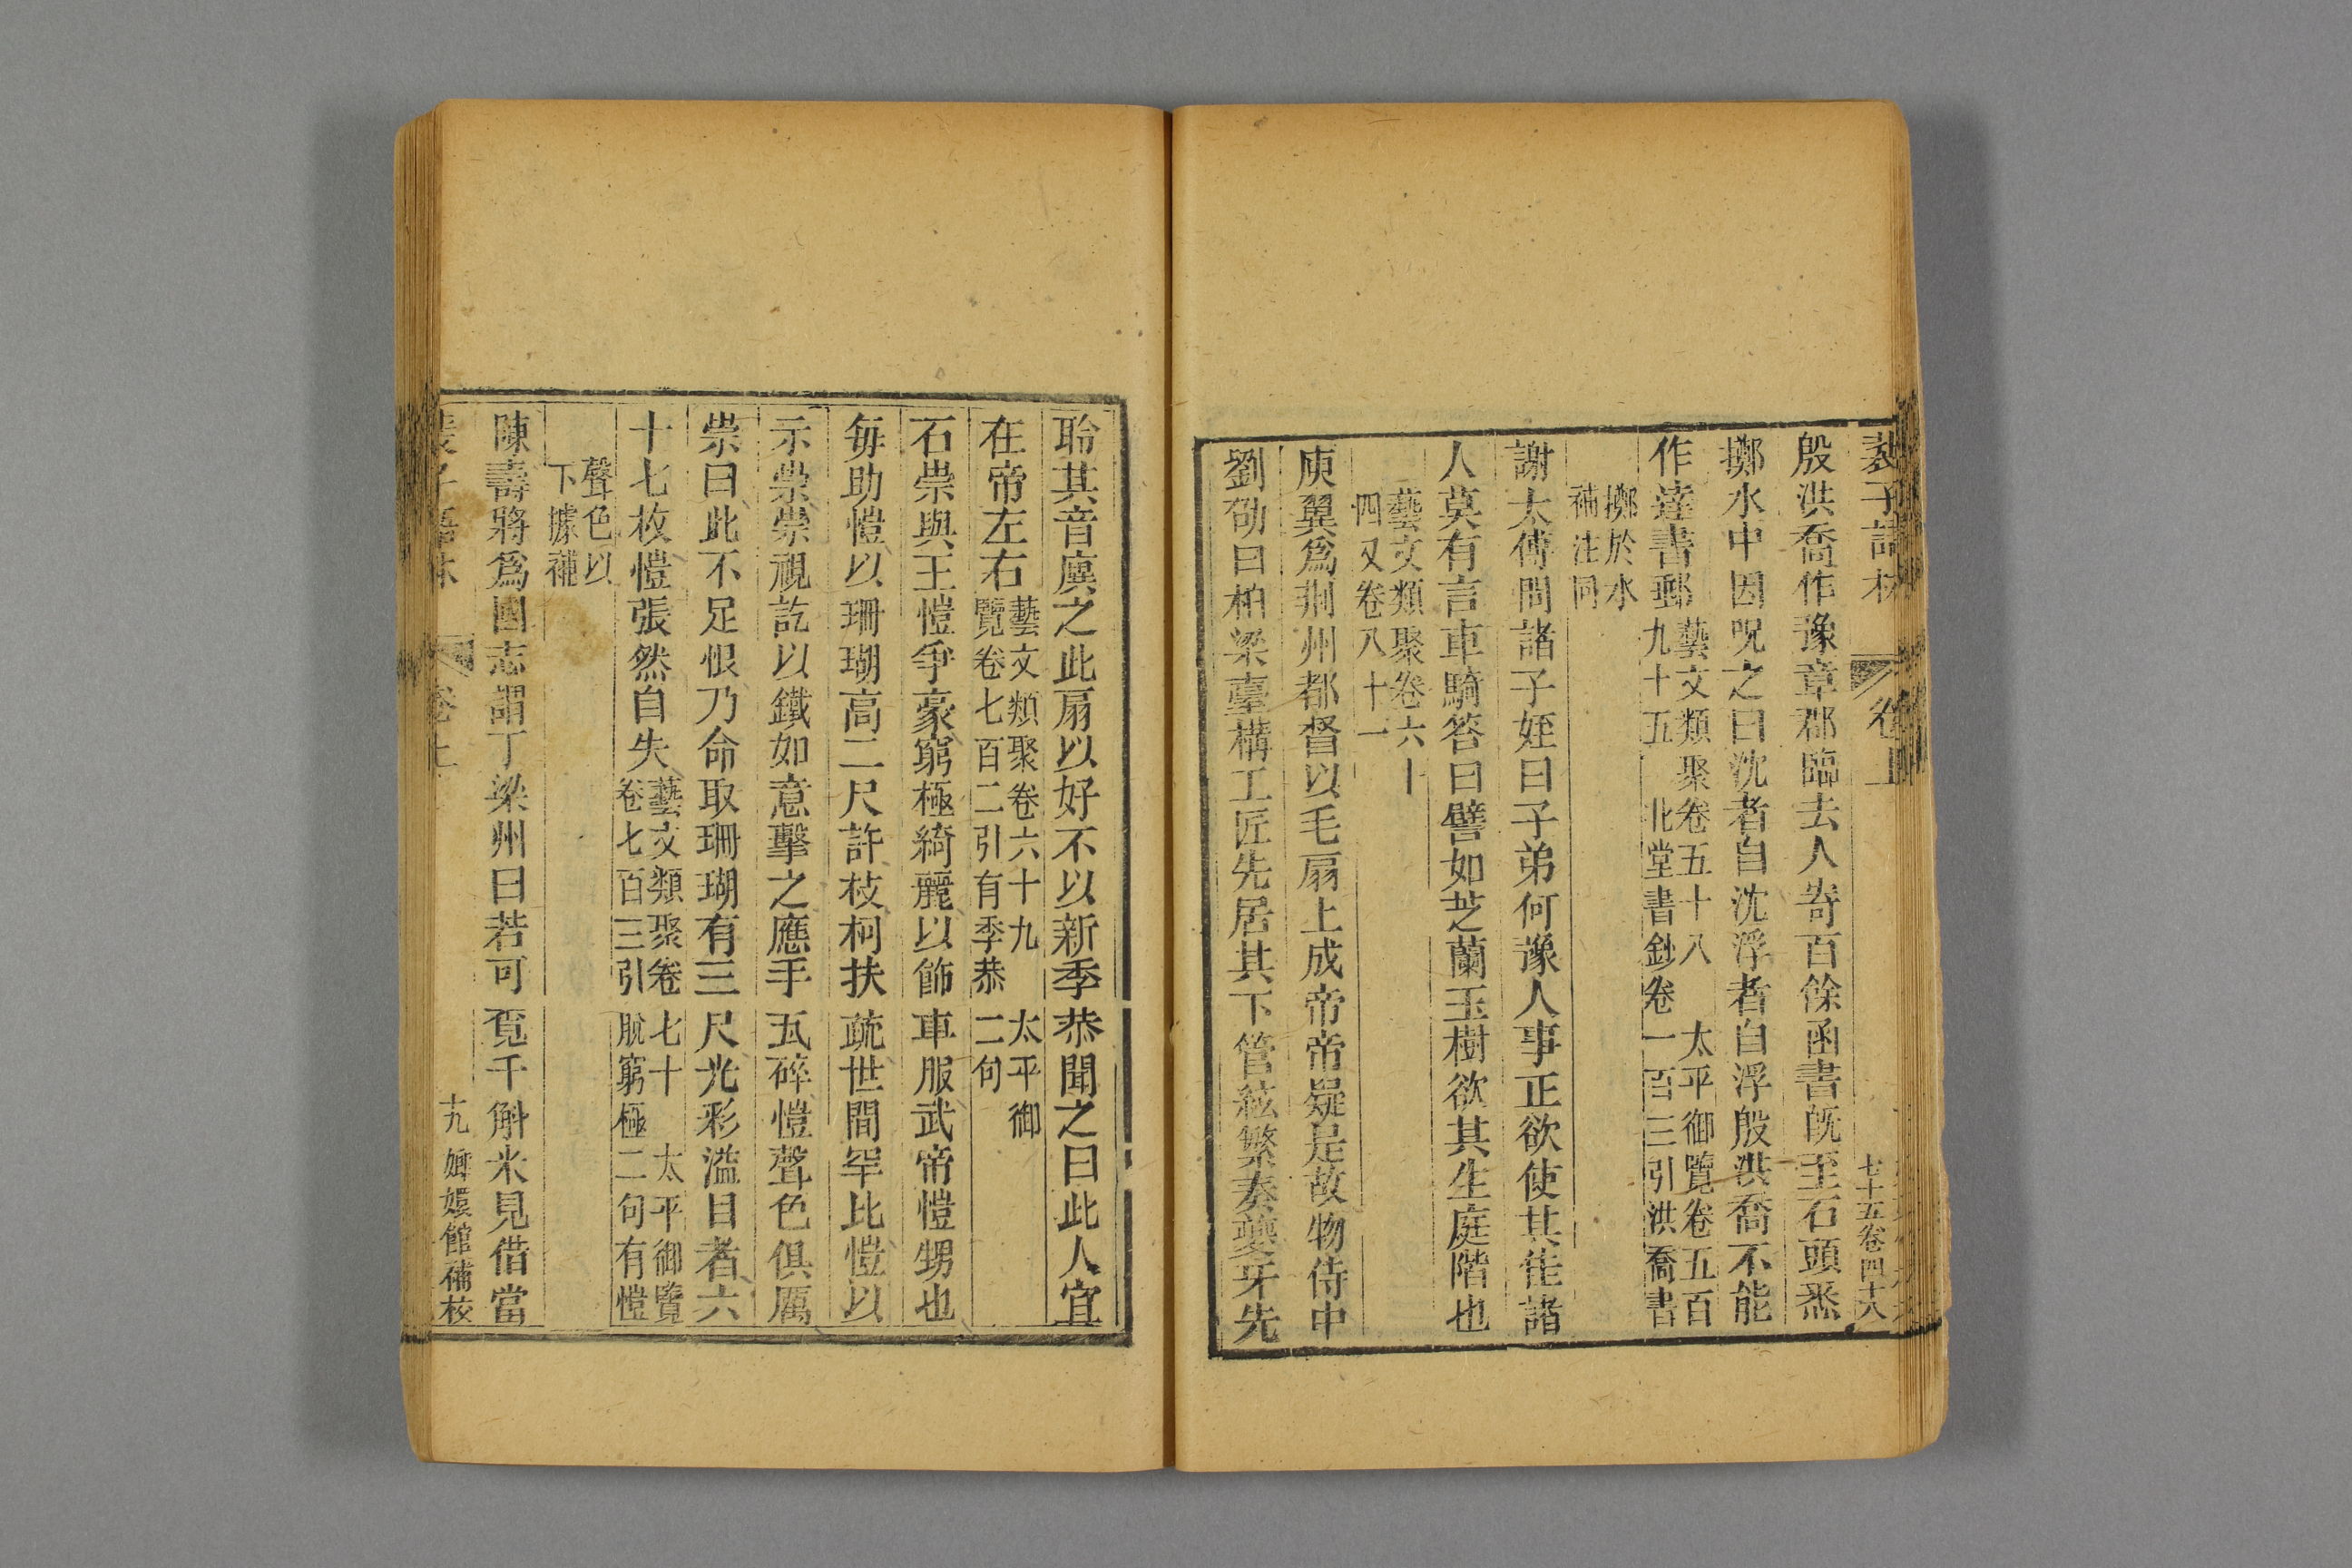 裴子語林 卷上 七十五卷四十八
殷洪喬作豫章郡臨去人寄百餘函書旣至石頭悉
擲水中因呪之曰沈者自沈浮者自浮殷洪喬不能
作達書郵藝文類聚卷五十八 太平御覽卷五百
九十五 北堂書鈔卷一百三引洪喬書
擲於水
補注同
謝太傅問諸子姪曰子弟何豫人事正欲使其佳諸
人莫有言車騎答曰譬如芝蘭玉樹欲其生庭階也
藝文類聚卷六十
四又卷八十一
庾翼爲荆州都督以毛扇上成帝帝疑是故物侍中
劉劭曰柏梁臺構工匠先居其下管絃繁奏夔牙先
聆其音廙之此扇以好不以新季恭聞之曰此人宜
在帝左右藝文類聚卷六十九 太平御
覽卷七百二引有季恭二句
石崇與王愷爭豪窮極綺麗以飾車服武帝愷甥也
每助愷以珊瑚高二尺許枝柯扶疏世間罕比愷以
示崇崇視訖以鐵如意擊之應手瓦碎愷聲色俱厲
崇曰此不足恨乃命取珊瑚有三尺光彩溢目者六
十七枚愷張然自失藝文類聚卷七十 太平御覽
卷七百三引脫窮極二句有愷
聲色以
下據補
陳壽將爲國志謂丁梁州曰若可覓千斛米見借當
裴子語林 卷上 十九 嫏嬛館補校